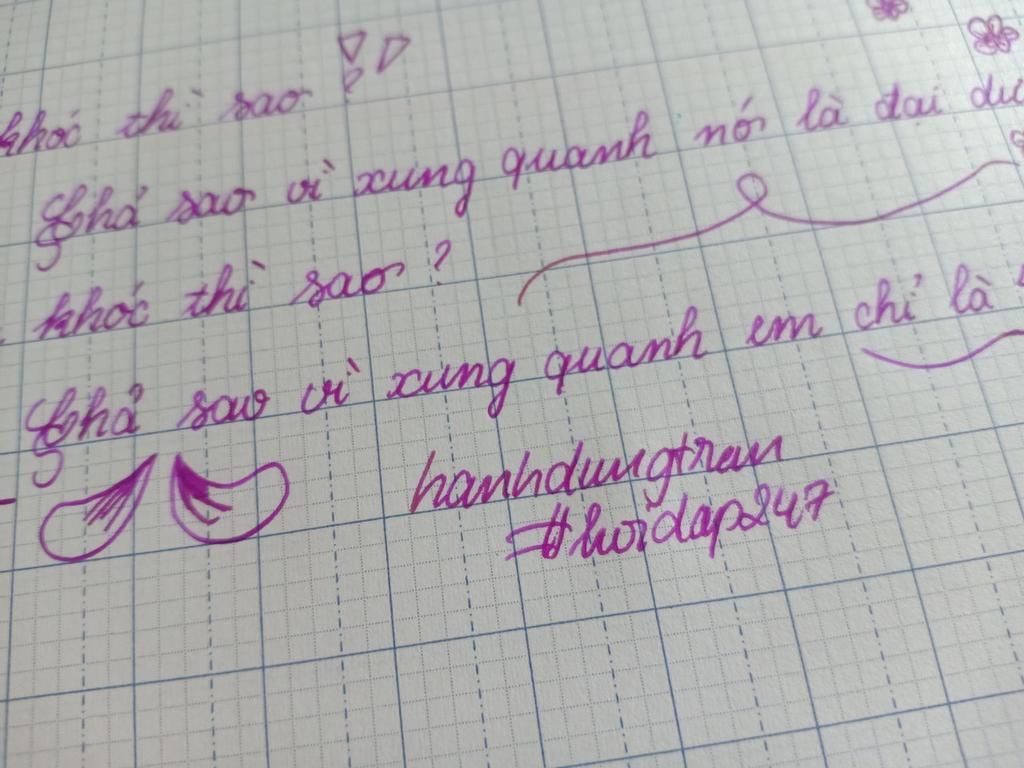 khóc thì sao?
Chả sao vì xung quanh nó là đại
khóc thì sao?
Chả sao vì xung quanh em chỉ là
hanhdungtran
#hoidap247